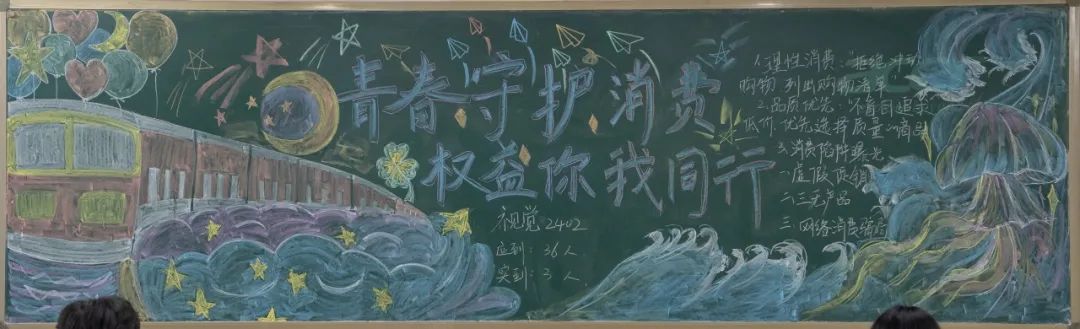 青春守护消费
权益你我同行
视觉2402
应到：36人
实到：3 人
1.理性消费：拒绝冲动
购物 列出购物清单
2.品质优先：不盲目追求
低价.优先选择质量的商品
3.消费陷阱曝光
一虚假促销
二三无产品
三.网络消费骗局